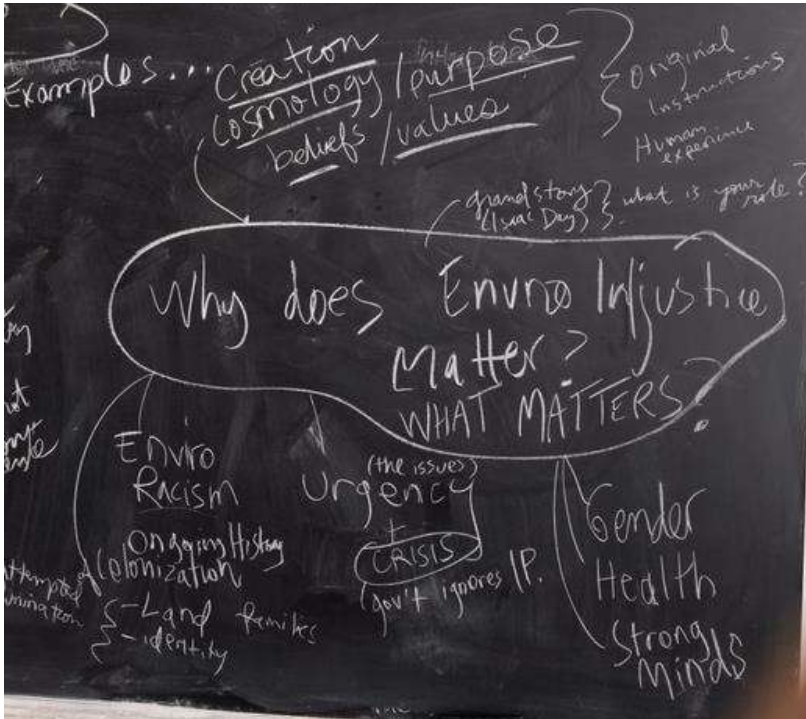 Examples...
Creation
cosmology / purpose
beliefs / values
Original
Instructions
Human
experience
grand story
what is your
role?
Why does Enviro Injustice
Matter?
WHAT MATTERS?
Enviro
Racism
Ongoing History
of Colonization
- Land families
- identity
(the issues)
Urgency
+
CRISIS
gov't ignores IP.
Gender
Health
Strong
Minds
Attempted